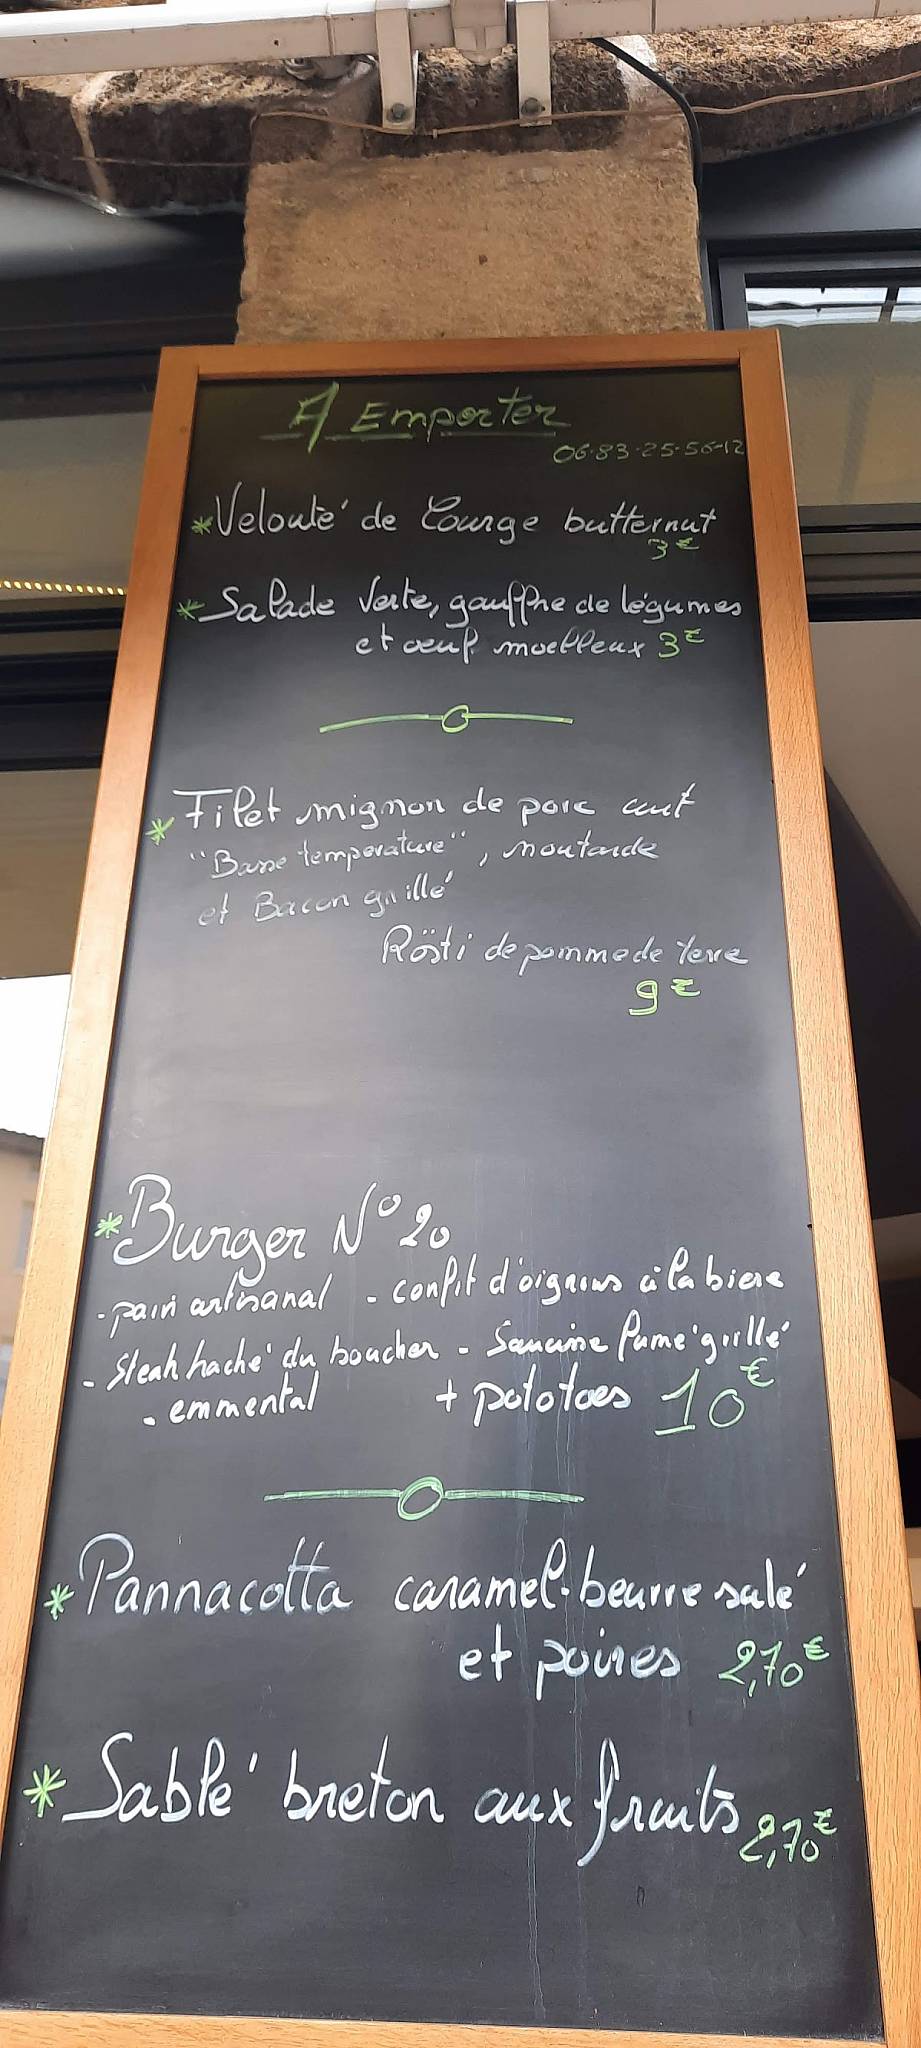 A Emporter
06.83.25.56.12
* Velouté de Courge butternut
3€
* Salade Verte, gauffre de légumes
et oeuf moelleux 3€
* Filet mignon de porc cuit
"Basse temperature", moutarde
et Bacon grillé
Rösti de pomme de terre
9€
* Burger N° 20
- pain artisanal - confit d'oignons à la biere
- Steak haché du boucher - Samoure fumé grillé
- emmental + pototoes 10€
* Pannacotta caramel-beurre salé
et poires 2,70€
* Sablé breton aux fruits 2,70€